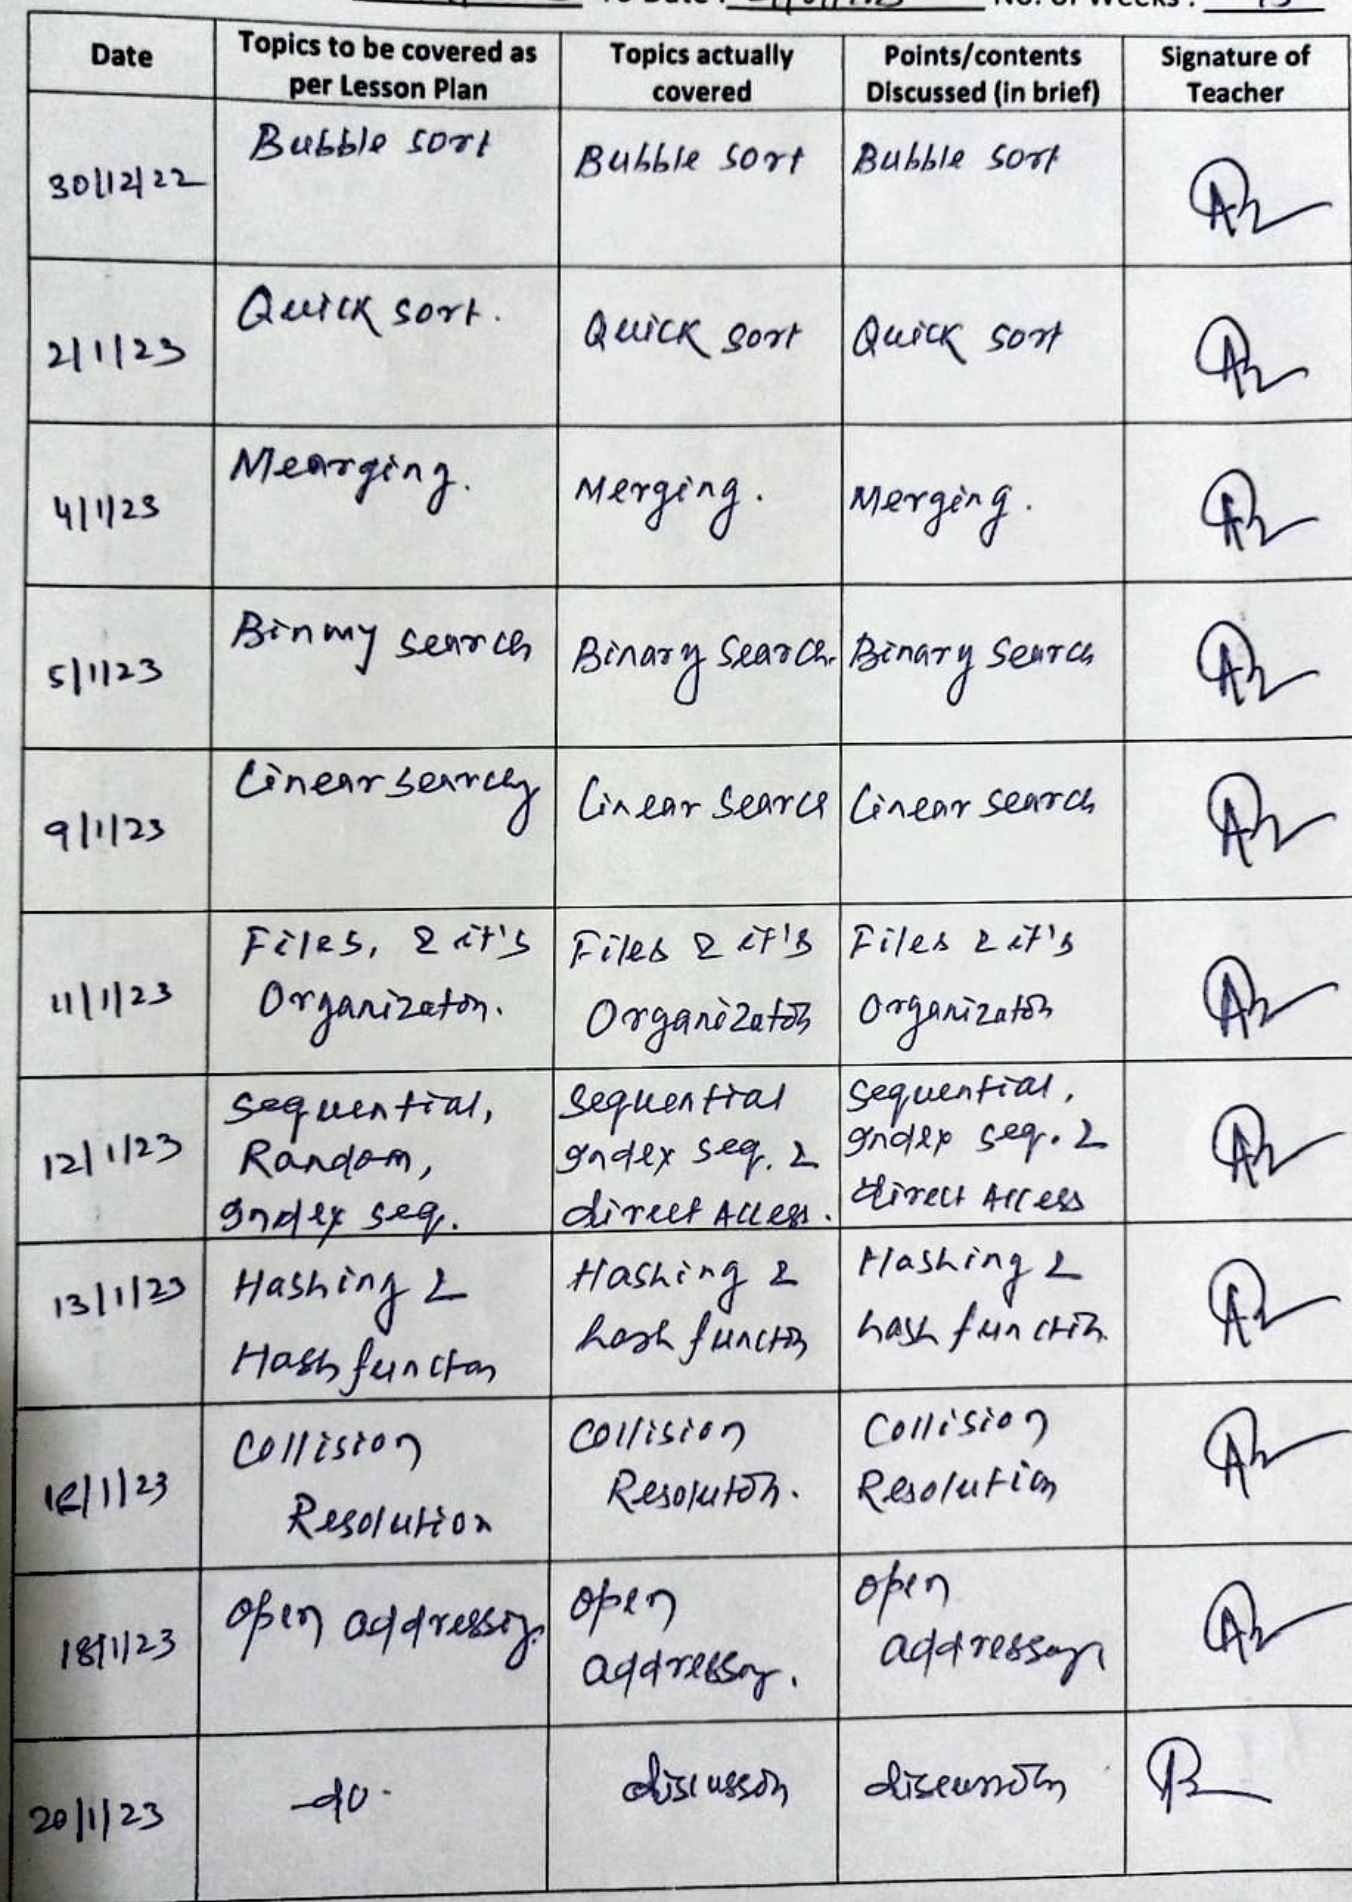 To Date :
No. of Weeks : 15
Date
Topics to be covered as
per Lesson Plan
Topics actually
covered
Points/contents
Discussed (in brief)
Signature of
Teacher
30/12/22
Bubble sort
Bubble sort
Bubble sort
2/1/23
Quick sort.
Quick sort
Quick sort
4/1/23
Mearging.
Merging.
Merging.
5/1/23
Binary search
Binary Search
Binary Search
9/1/23
Linear search
Linear Search
Linear search
11/1/23
Files, & it's
Organization.
Files & it's
Organization
Files & it's
Organization
12/1/23
Sequential,
Random,
Index seq.
Sequential
Index seq. &
direct Access.
Sequential,
Index seq. &
direct Access
13/1/23
Hashing &
Hash function
Hashing &
hash function
Hashing &
hash function
/1/23
Collision
Resolution
Collision
Resolution.
Collision
Resolution
18/1/23
Open addressing.
Open
addressing.
Open
addressing
20/1/23
-do-
discussion
discussion